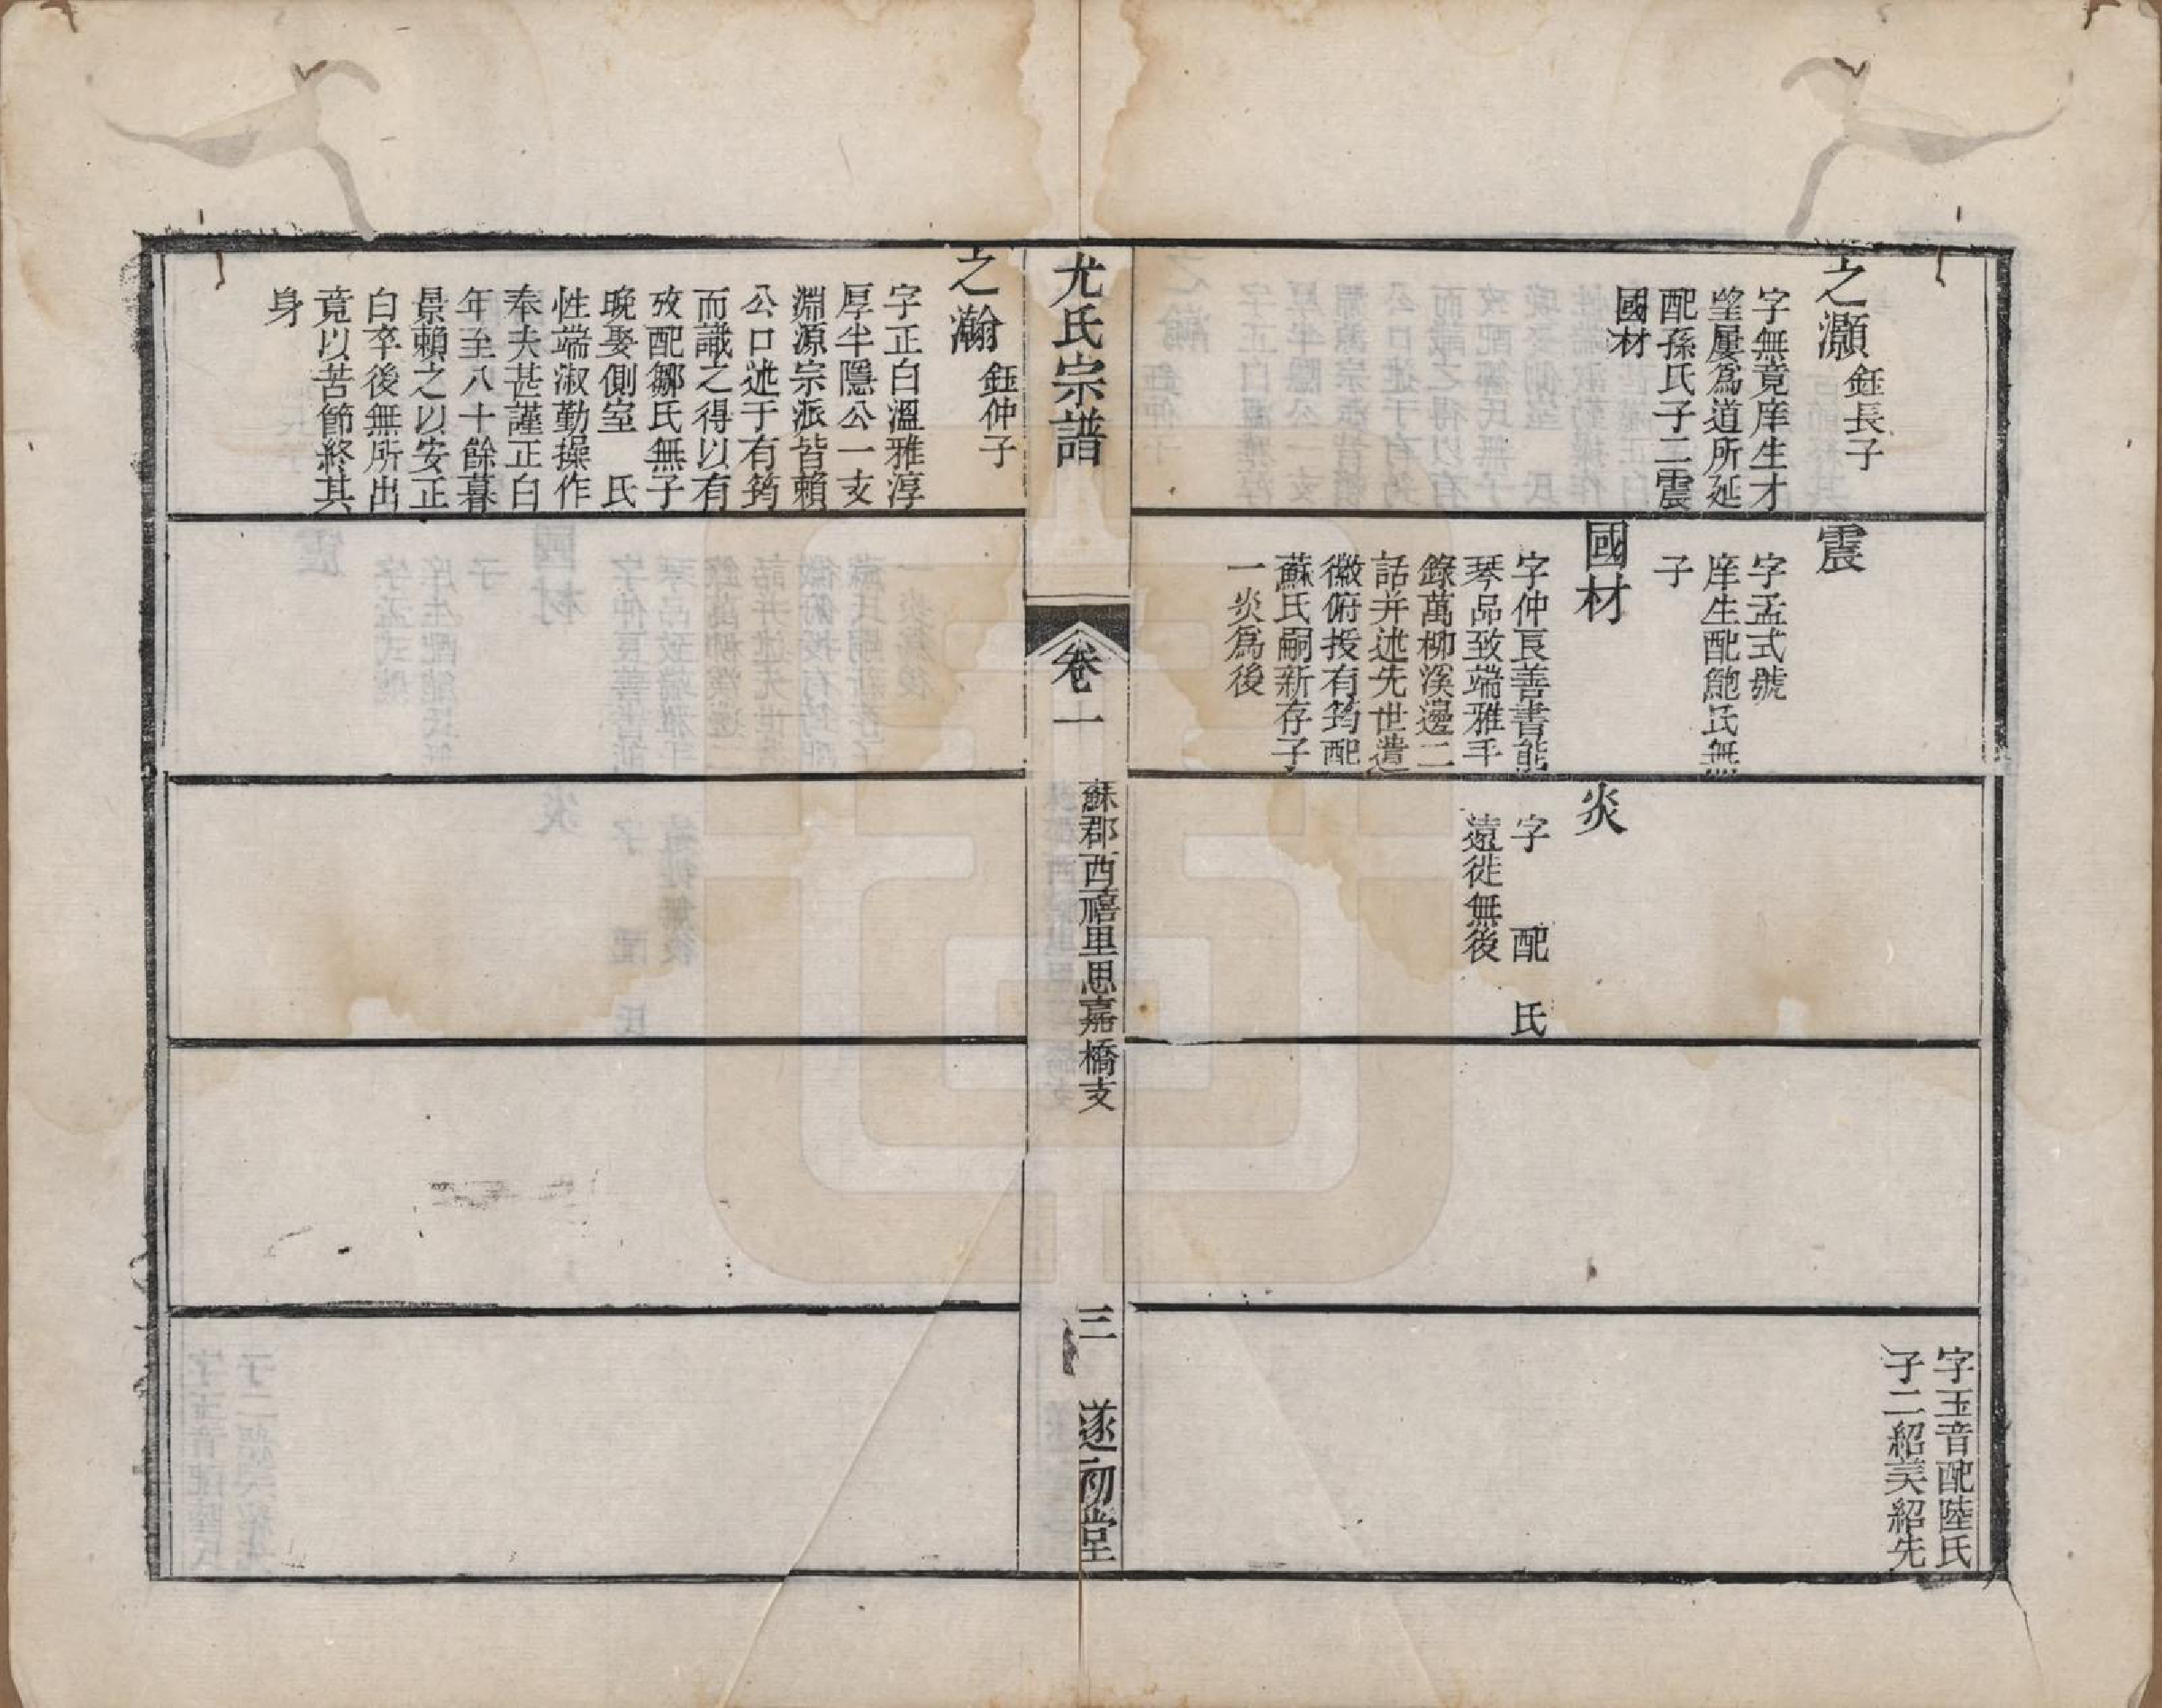 之灝 鈺長子
字無竟庠生才
望屢爲道所延
配孫氏子二震
國材
震
字孟式號
庠生配鮑氏無
子
國材
字仲良善書能
琴品致端雅手
錄萬柳溪邊二
話并述先世遺
徽俯授有筠配
蘇氏嗣新存子
一炎爲後
炎
字 配 氏
遠徙無後
字玉音配陸氏
子二紹美紹先
尤氏宗譜
卷一
蘇郡西禧里思嘉橋支
三
遂初堂
之瀚 鈺仲子
字正白溫雅淳
厚半隱公一支
淵源宗派皆賴
公口述于有筠
而識之得以有
攷配鄒氏無子
晚娶側室 氏
性端淑勤操作
奉夫甚謹正白
年至八十餘暮
景賴之以安正
白卒後無所出
竟以苦節終其
身